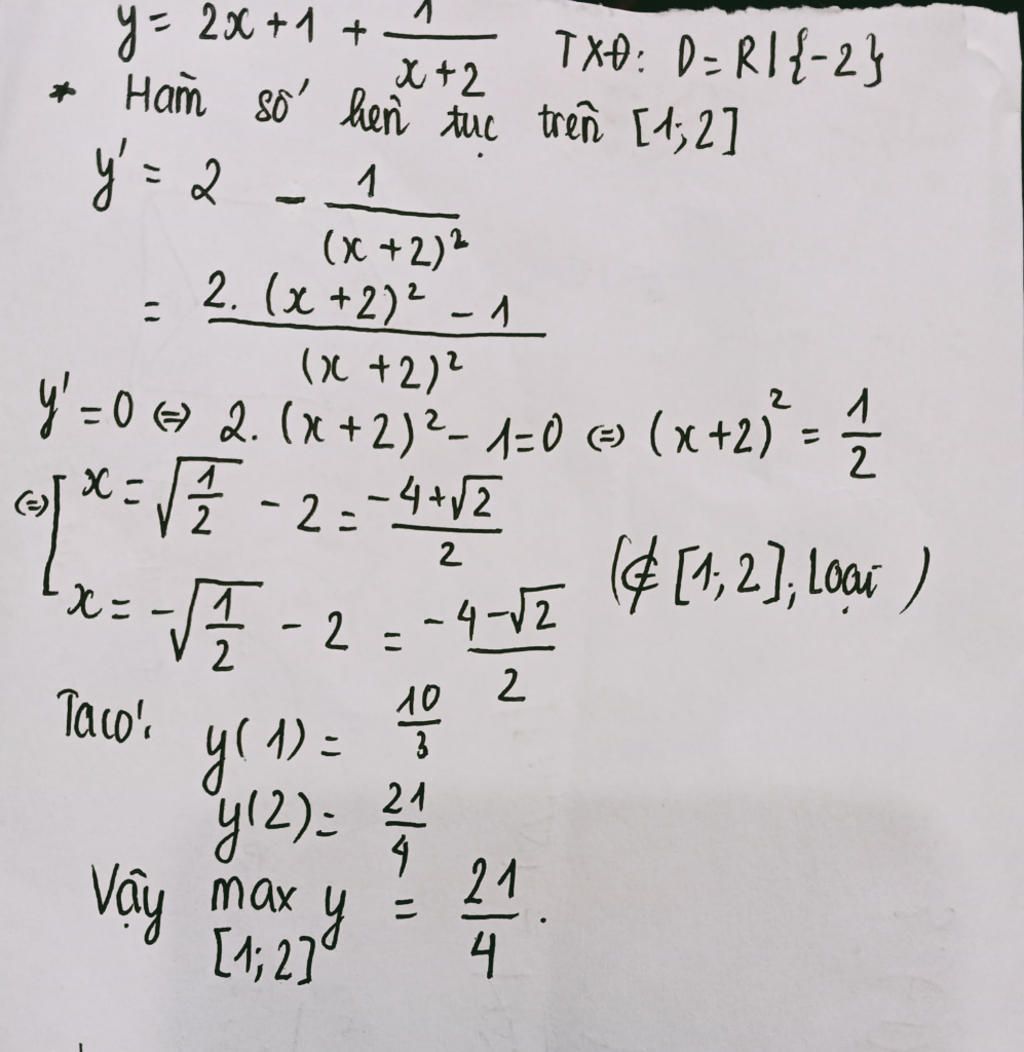 y = 2x + 1 + 1/(x+2) TXĐ: D = R \ {-2}
* Hàm số liên tục trên [1;2]
y' = 2 - 1/(x+2)²
= (2.(x+2)² - 1)/(x+2)²
y' = 0 ⇔ 2.(x+2)² - 1 = 0 ⇔ (x+2)² = 1/2
⇔ [ x = √(1/2) - 2 = (-4+√2)/2
x = -√(1/2) - 2 = (-4-√2)/2 (∉ [1;2]; Loại)
Ta có: y(1) = 10/3
y(2) = 21/4
Vậy max y = 21/4.
[1;2]